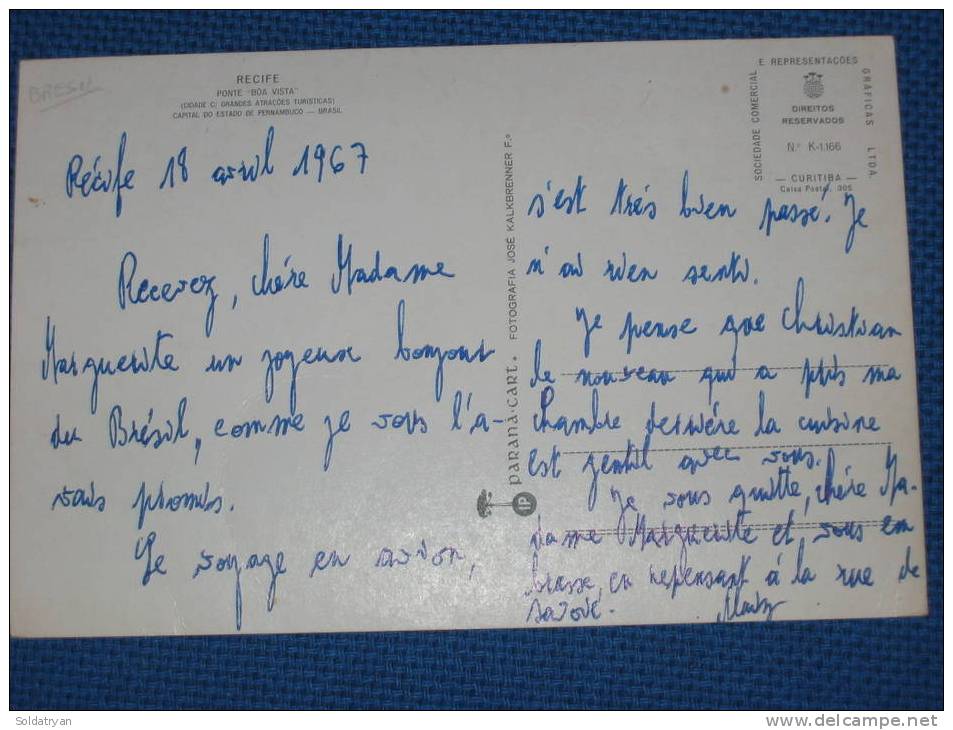 BRESIL
RECIFE
PONTE "BOA VISTA"
(CIDADE C/ GRANDES ATRAÇÕES TURISTICAS)
CAPITAL DO ESTADO DE PERNAMBUCO — BRASIL
Récife 18 avril 1967
Recevez, chére Madame
Marguerite un joyeux bonjour
du Brésil, comme je vous l'a-
vais promis.
Le voyage en avion,
PARANÁ-CART. FOTOGRAFIA JOSÉ KALKBRENNER F.º
IP
SOCIEDADE COMERCIAL
E REPRESENTAÇÕES
GRÁFICAS LTDA.
DIREITOS
RESERVADOS
N.º K-1.166
— CURITIBA —
Caixa Postal, 305
s'est trés bien passé. Je
n'ai rien senti.
Je pense que Christian
le nouveau qui a pris ma
chambre derriére la cuisine
est gentil avec vous.
Je vous quitte, chére Ma-
dame Marguerite et vous em
brasse, en repensant à la rue de
savoie.
Soldatryan
www.delcampe.net